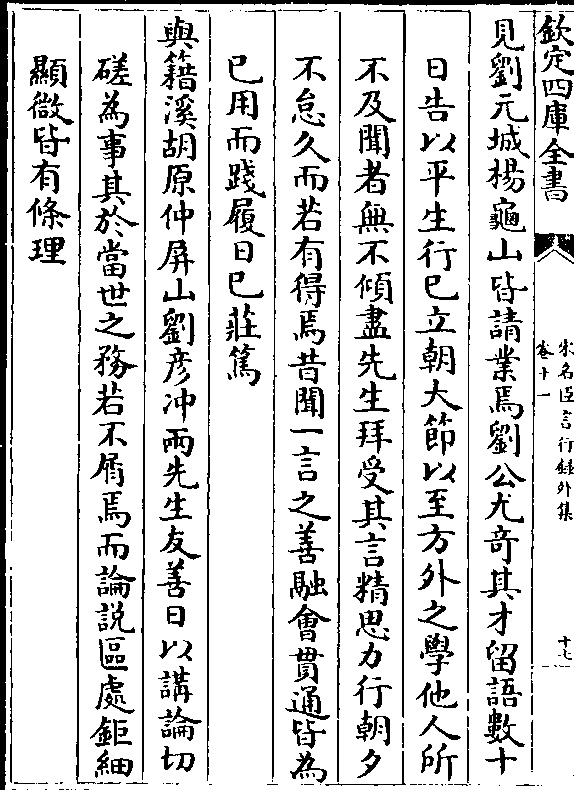 欽定四庫全書
宋名臣言行錄外集
卷十一
十七
見劉元城楊龜山皆請業焉劉公尤竒其才留語數十
日告以平生行已立朝大節以至方外之學他人所
不及聞者無不傾盡先生拜受其言精思力行朝夕
不怠久而若有得焉昔聞一言之善融會貫通皆為
已用而踐履日已莊篤
與籍溪胡原仲屏山劉彦冲兩先生友善日以講論切
磋為事其於當世之務若不屑焉而論説區處鉅細
顯微皆有條理